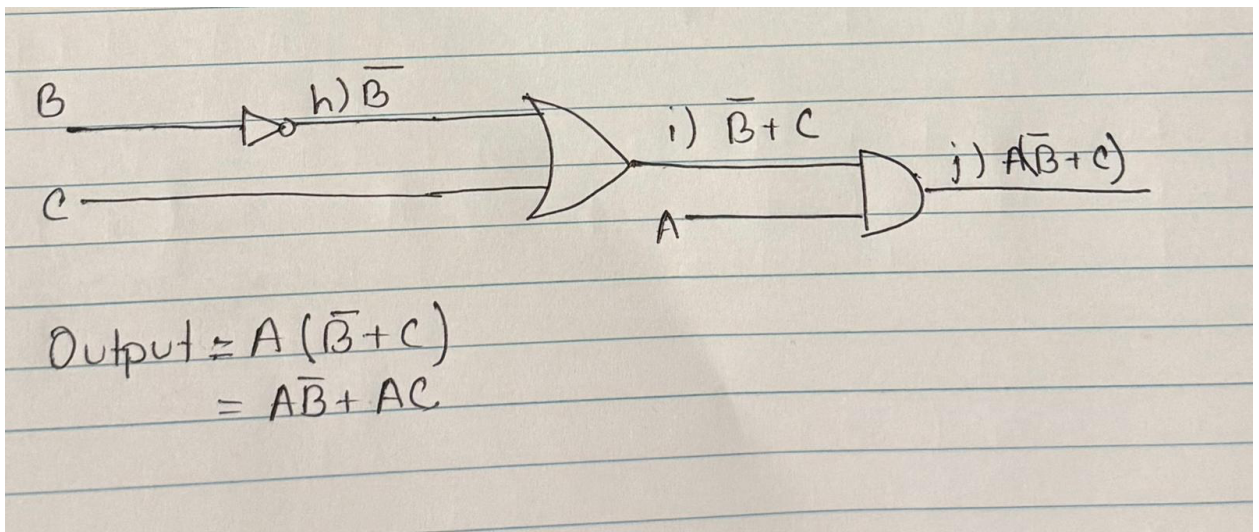 B
h) B̅
i) B̅ + C
j) A(B̅ + C)
C
A
Output = A (B̅ + C)
= AB̅ + AC